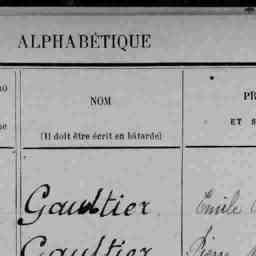 ALPHABÉTIQUE
NOM
(Il doit être écrit en bâtarde)
ET S
Gaultier Emile
Gaultier Pierre